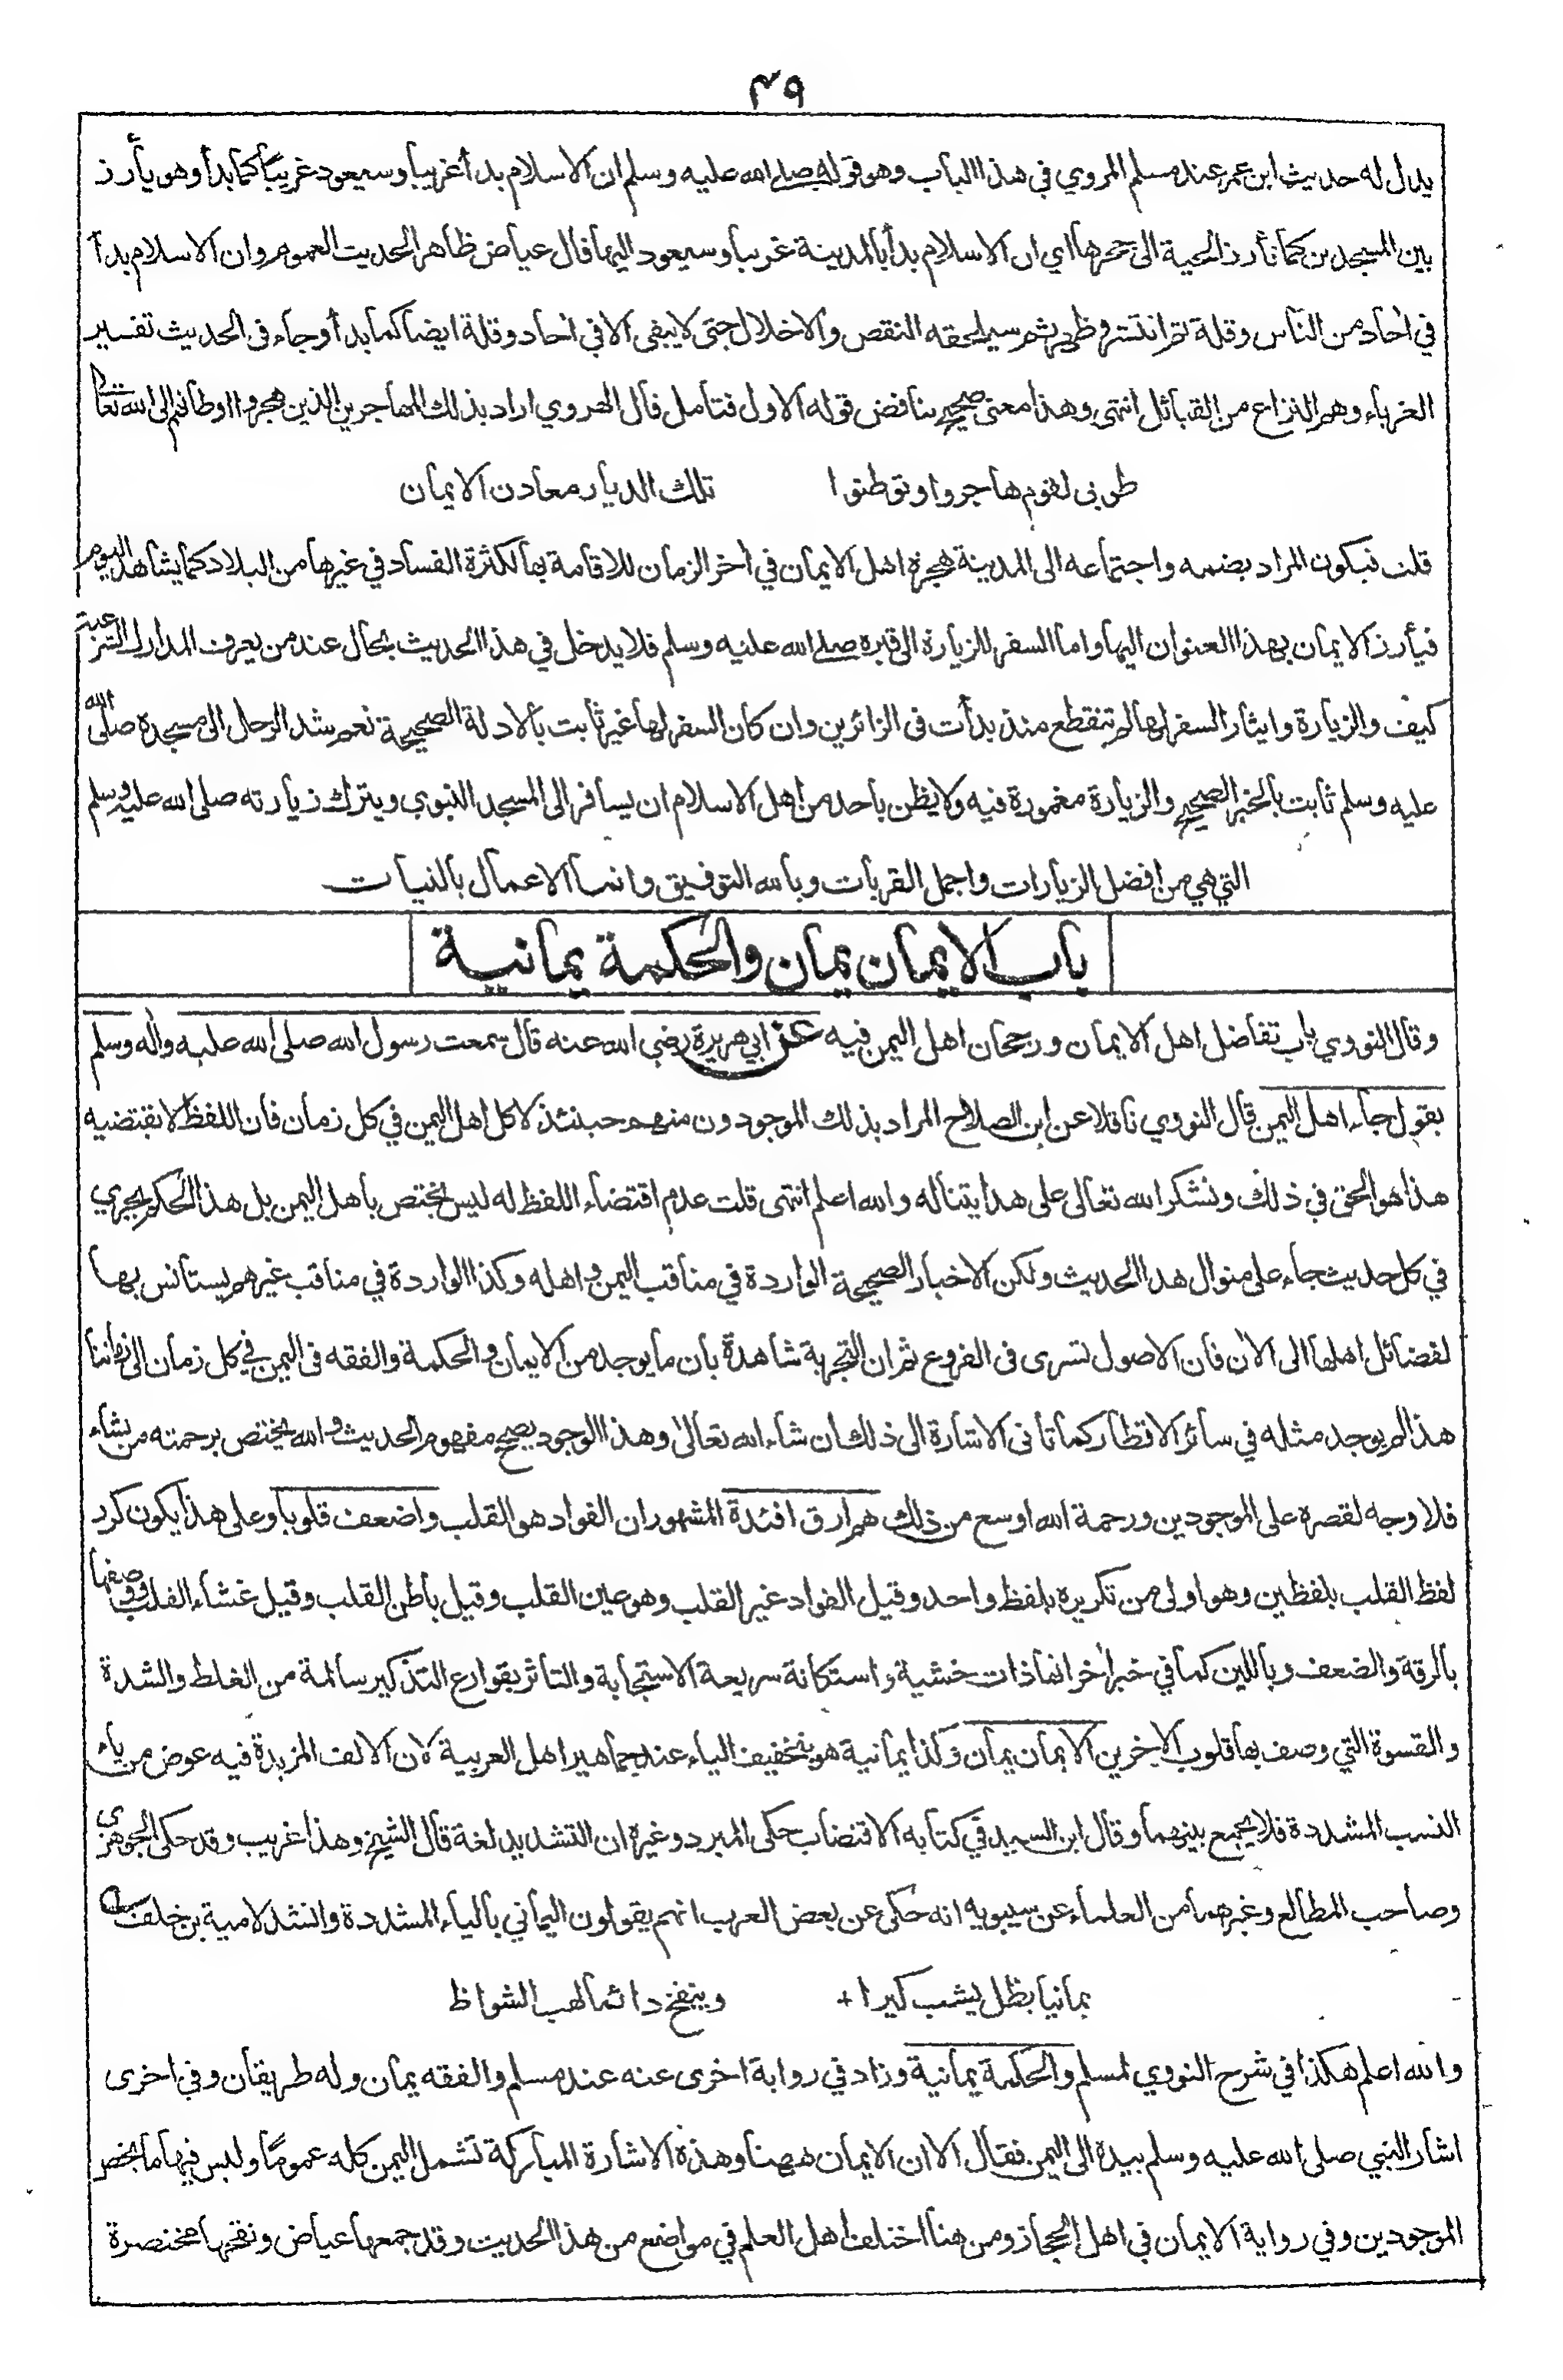 ٤٩
يدل له حديث ابن عمر عند مسلم المروي في هذا الباب وهو قوله صلى الله عليه وسلم ان الاسلام بدأ غريبا وسيعود غريبًا كما بدأ وهو يأرز
بين المسجدين كما تأرز الحية الى حجرها اي ان الاسلام بدأ بالمدينة غريبا وسيعود اليها قال عياض ظاهر الحديث العموم وان الاسلام بدأ
في اٰحاد من الناس وقلة ثم انتشر وظهر ثم سيلحقه النقص والاخلال حتى لا يبقى الا في اٰحاد وقلة ايضا كما بدأ وجاء فى الحديث تفسير
الغرباء وهم النزاع من القبائل انتهى وهذا معنى صحيح يناقض قوله الاول فتامل قال الهروي اراد بذلك المهاجرين الذين هجروا اوطانهم الى الله تعالى
طوبى لقوم هاجروا وتوطنوا تلك الديار معادن الايمان
قلت فيكون المراد بضمه واجتماعه الى المدينة هجرة اهل الايمان في اٰخر الزمان للاقامة بها لكثرة الفساد في غيرها من البلاد كما يشاهد اليوم
فيأرز الايمان بهذا العنوان اليها واما السفر للزيارة الى قبره صلى الله عليه وسلم فلا يدخل في هذا الحديث بحال عند من يعرف المدارك الشرعية
كيف والزيارة وايثار السفر لها لم تنقطع منذ بدأت فى الزائرين وان كان السفر لها غير ثابت بالادلة الصحيحة نعم شد الرحل الى مسجده صلى الله
عليه وسلم ثابت بالخبر الصحيح والزيارة مغمورة فيه ولا يظن باحد من اهل الاسلام ان يسافر الى المسجد النبوي ويترك زيارته صلى الله عليه وسلم
التي هي من افضل الزيارات واجمل القربات وبالله التوفيق وانما الاعمال بالنيات
باب الايمان يمان والحكمة يمانية
وقال النووي باب تفاضل اهل الايمان ورجحان اهل اليمن فيه عن ابي هريرة رضي الله عنه قال سمعت رسول الله صلى الله عليه واٰله وسلم
يقول جاء اهل اليمن قال النووي ناقلا عن ابن الصلاح المراد بذلك الموجودون منهم حينئذ لا كل اهل اليمن في كل زمان فان اللفظ لا يقتضيه
هذا هو الحق في ذلك ونشكر الله تعالى على هدايتنا له والله اعلم انتهى قلت عدم اقتضاء اللفظ له ليس بمختص باهل اليمن بل هذا الحكم يجري
في كل حديث جاء على منوال هذا الحديث ولكن الاخبار الصحيحة الواردة في مناقب اليمن واهله وكذا الواردة في مناقب غيرهم يستانس بها
لفضائل اهلها الى الاٰن فان الاصول تسرى فى الفروع ثم ان التجربة شاهدة بان ما يوجد من الايمان والحكمة والفقه فى اليمن في كل زمان الى زماننا
هذا لم يوجد مثله في سائر الاقطار كما تأتى الاشارة الى ذلك ان شاء الله تعالىٰ وهذا الوجود يصحح مفهوم الحديث والله يختص برحمته من يشاء
فلا وجه لقصره على الموجودين ورحمة الله اوسع من ذلك هم ارق افئدة المشهور ان الفواد هو القلب واضعف قلوبا وعلى هذا يكون كرر
لفظ القلب بلفظين وهو اولى من تكريره بلفظ واحد وقيل الفواد غير القلب وهو عين القلب وقيل باطن القلب وقيل غشاء القلب ووصفها
بالرقة والضعف وباللين كما في خبر اٰخر انها ذات خشية واستكانة سريعة الاستجابة والتاثر بقوارع التذكير سالمة من الغلظ والشدة
والقسوة التي وصف بها قلوب الاٰخرين الايمان يمان وكذا يمانية هو بتخفيف الياء عند جماهير اهل العربية لان الالف المزيدة فيه عوض من ياء
النسب المشددة فلا يجمع بينهما وقال ابن السيد في كتابه الاقتضاب حكى المبرد وغيره ان التشديد لغة قال الشيخ وهذا غريب وقد حكى الجوهرى
وصاحب المطالع وغيرهما من العلماء عن سيبويه انه حكى عن بعض العرب انهم يقولون اليماني بالياء المشددة وانشد لامية بن خلف
يمانيا يظل يشب كيرا + وينفخ دائما لهب الشواظ
والله اعلم هكذا في شرح النووي لمسلم والحكمة يمانية وزاد في رواية اخرى عنه عند مسلم والفقه يمان وله طريقان وفي اخرى
اشار النبي صلى الله عليه وسلم بيده الى اليمن فقال الا ان الايمان ههنا وهذه الاشارة المباركة تشمل اليمن كله عمومًا وليس فيها ما يخص
الموجودين وفي رواية الايمان في اهل الحجاز ومن هنا اختلف اهل العلم في مواضع من هذا الحديث وقد جمعها عياض ونقحها مختصرة